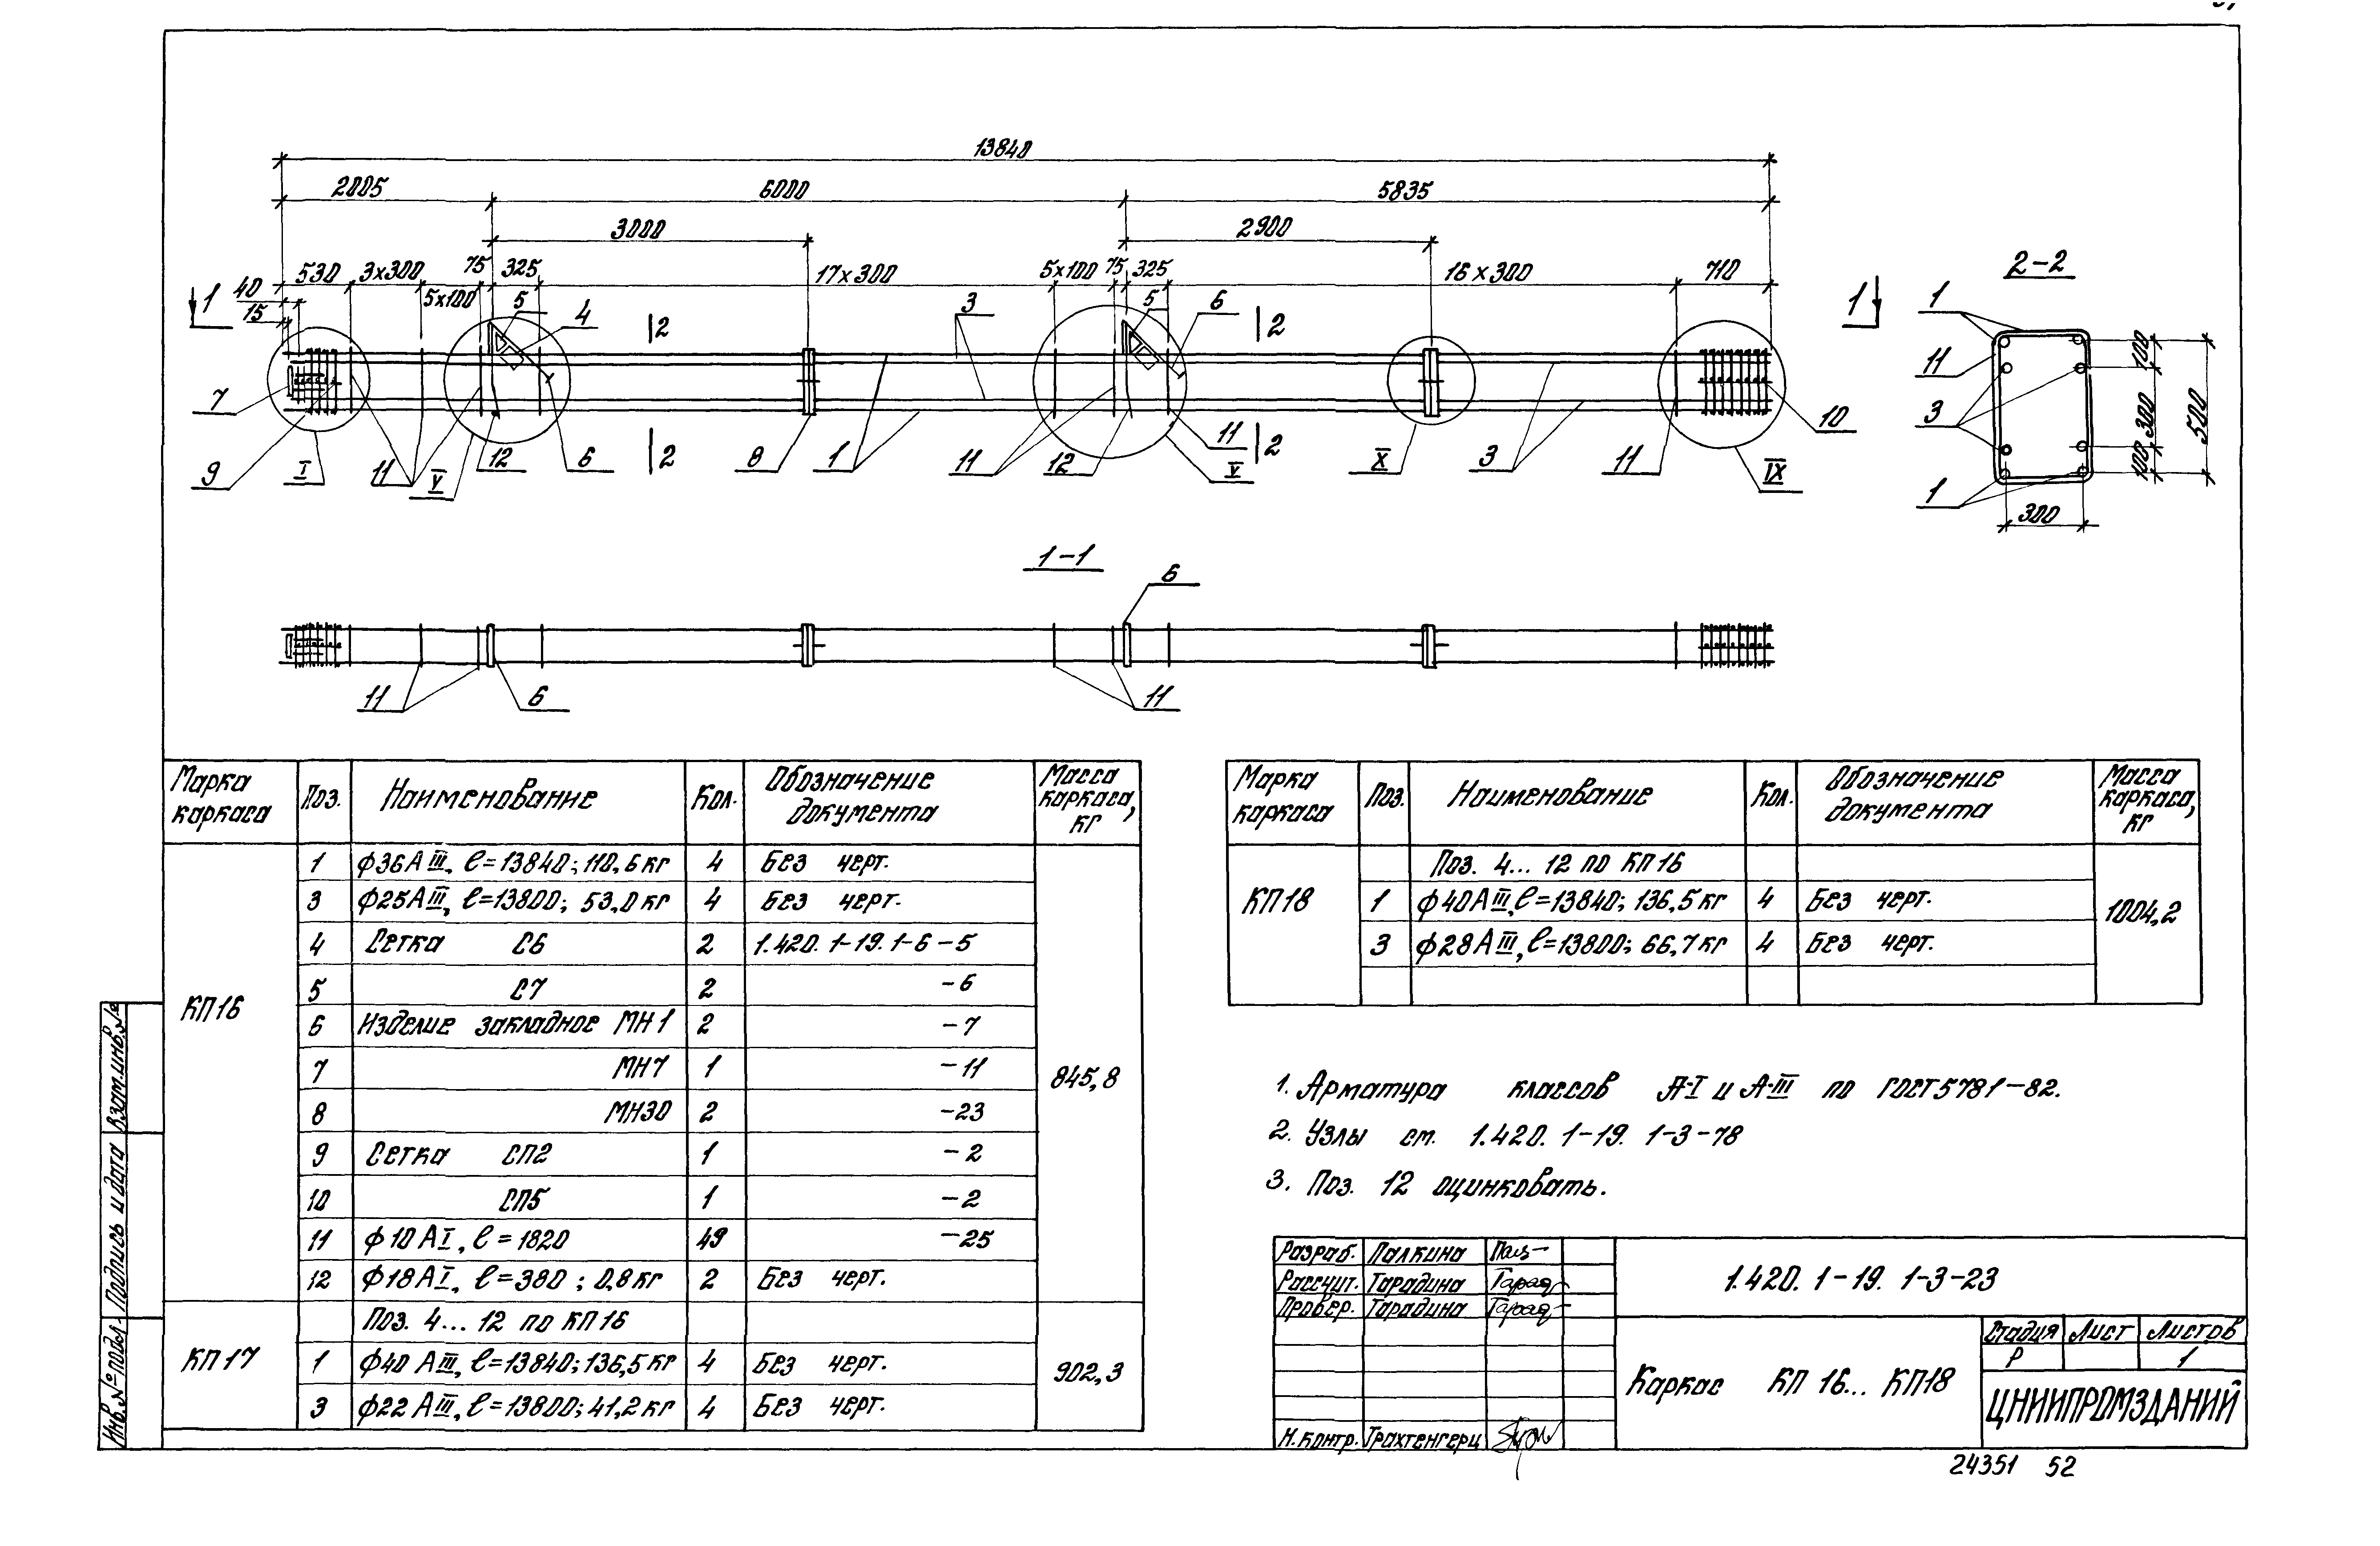 13840
2005 6000 5835
3000 2900
40 530 3х300 75 325 17х300 5х100 75 325 16х300 710
15 5х100
1 1
5 4 3 5 6
2 2
7 9 I 11 V 12 6 2 8 1 3 11 12 11 V 2 X 3 11 IX 10
2-2
1
11
3
1
100
300
100
500
300
1-1
6
11 6 11
Марка каркаса Поз. Наименование Кол. Обозначение документа Масса каркаса, кг
КП16 845,8
1 ф36АIII, ℓ=13840; 110,6 кг 4 Без черт.
3 ф25АIII, ℓ=13800; 53,0 кг 4 Без черт.
4 Сетка С6 2 1.420.1-19.1-6-5
5 С7 2 -6
6 Изделие закладное МН1 2 -7
7 МН7 1 -11
8 МН30 2 -23
9 Сетка СП2 1 -2
10 СП5 1 -2
11 ф10АI, ℓ=1820 49 -25
12 ф18АI, ℓ=380; 0,8 кг 2 Без черт.
КП17 902,3
Поз. 4... 12 по КП16
1 ф40АIII, ℓ=13840; 136,5 кг 4 Без черт.
3 ф22АIII, ℓ=13800; 41,2 кг 4 Без черт.
Марка каркаса Поз. Наименование Кол. Обозначение документа Масса каркаса, кг
КП18 1004,2
Поз. 4... 12 по КП16
1 ф40АIII, ℓ=13840; 136,5 кг 4 Без черт.
3 ф28АIII, ℓ=13800; 66,7 кг 4 Без черт.
1. Арматура классов А-I и А-III по ГОСТ 5781-82.
2. Узлы см. 1.420.1-19.1-3-78
3. Поз. 12 оцинковать.
Разраб. Палкина
Рассчит. Тарадина
Провер. Тарадина
Н.контр. Трахтенгерц
1.420.1-19.1-3-23
Каркас КП16... КП18
Стадия Лист Листов
Р 1
ЦНИИПРОМЗДАНИЙ
Инв.№подл. Подпись и дата Взам.инв.№
24351 52